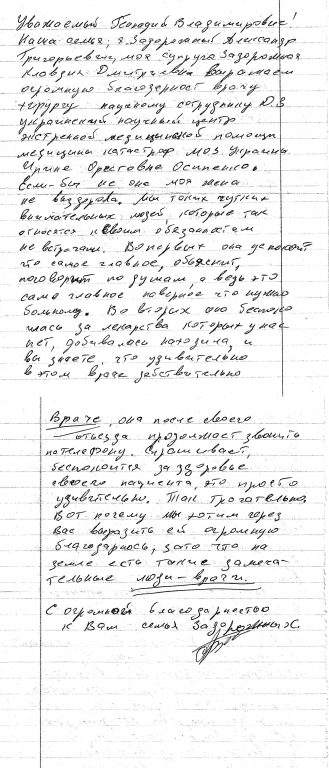 Уважаемый Геннадий Владимирович!
Наша семья, я, Задорожный Александр
Григорьевич, моя супруга Задорожная
Клавдия Дмитриевна выражаем
огромную благодарность врачу
хирургу научному сотруднику Ю.З
украинский научный центр
экстренной медицинской помощи
медицины катастроф МОЗ Украины
Ирине Орестовне Осипенко.
Если-бы не она моя жена
не выздоровела. Мы таких чутких
внимательных людей, которые так
относятся к своим обязаностям
не встречали. Во первых она успокоит
что самое главное, объяснит,
поговорит по душам, а ведь это
само главное наверное что нужно
больному. Во вторых она беспоко
илась за лекарства которых у нас
нет, добивалась находила, и
вы знаете, что удивительно
в этом враче действительно
Враче, она после своего
отьезда продолжает звонить
по телефону. Спрашивает,
беспокоится за здоровье
своего пациента, это просто
удивительно. Так трогательно.
Вот почему мы хотим через
Вас выразить ей огромную
благодарность, зато что на
земле есть такие замеча-
тельные люди-врачи.
С огромной благодарностью
к Вам семья Задорожных.